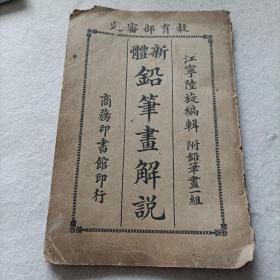 教育部審定
江寧陸旋編輯 附鉛筆畫一組
新體
鉛筆畫解説
商務印書館印行